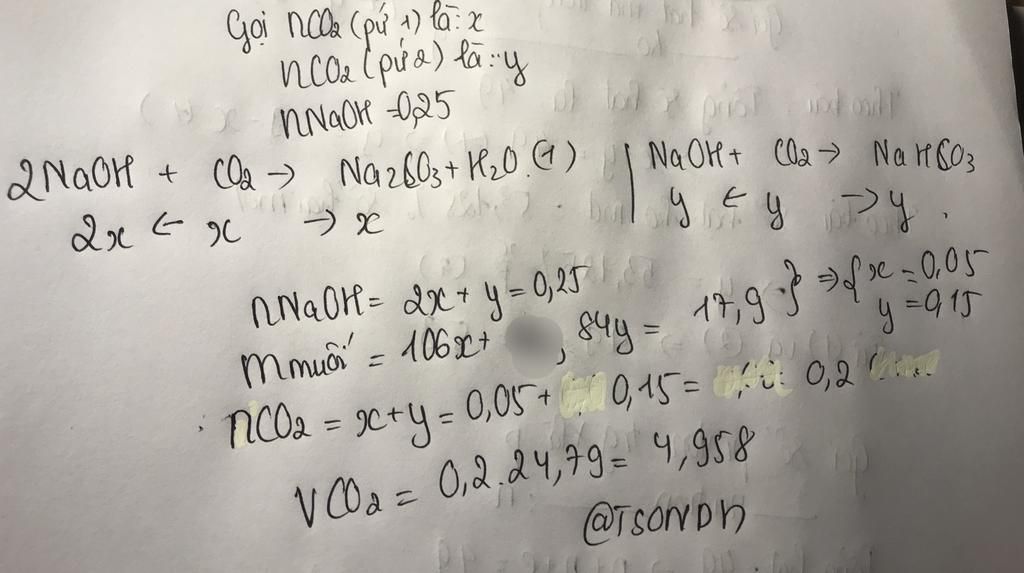 Gọi nCO2 (pứ 1) là: x
nCO2 (pứ 2) là: y
nNaOH = 0,25
2NaOH + CO2 → Na2CO3 + H2O. (1) | NaOH + CO2 → NaHCO3
2x ← x → x y ← y → y .
nNaOH = 2x + y = 0,25
mmuối = 106x + , 84y = 17,9 } ⇒ { x = 0,05
y = 0,15
nCO2 = x + y = 0,05 + 0,15 = 0,2
VCO2 = 0,2 . 24,79 = 4,958
@TSONDN